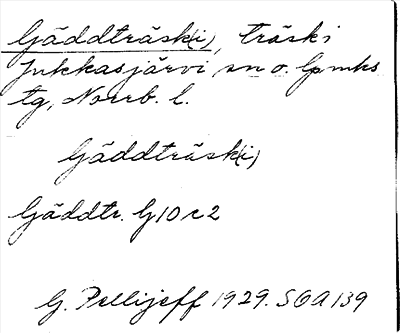 Gäddträsk(i), träsk i
Jukkasjärvi sn o. lpmks
tg, Norrb. l.
Gäddträsk(i)
Gäddtr. G10 c2
G. Pellijeff 1929. SOA 139